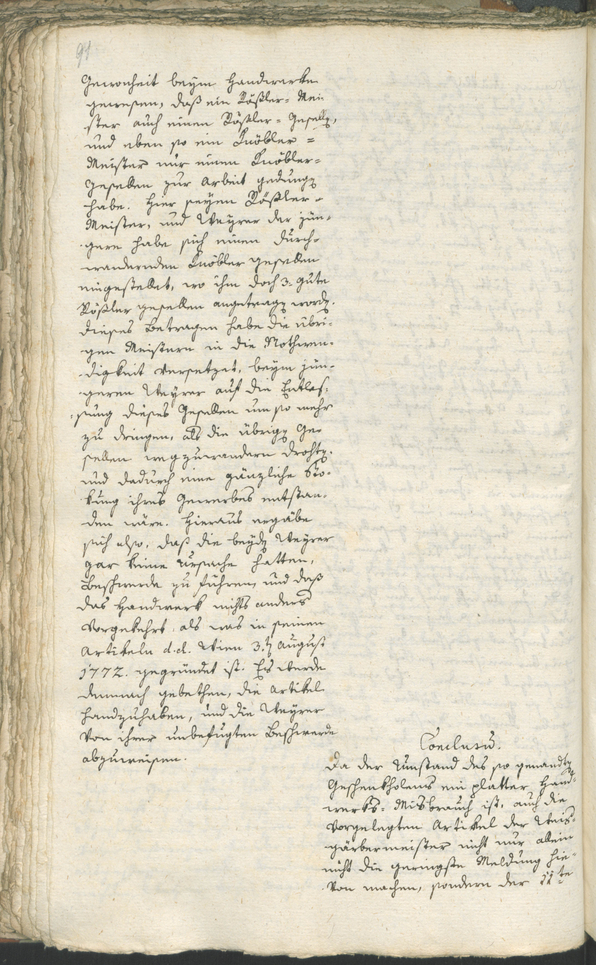 91
Gewonheit beym Handwerke
gewesen, daß ein Rößler- Mei
ster auch einen Rößler- Gesellen,
und eben so ein Knöbler-
Meister nur einen Knöbler-
Gesellen zur Arbeit gedungen
habe. Hier seyen Rößler-
Meister, und Weyrer der jün-
gere habe sich einen durch-
wandernden Knöbler gesellen
eingestellet, wo ihm doch 3. gute
Rößler gesellen angetragen worden.
Dieses Betragen habe die übri-
gen Meistern in die Nothwen-
digkeit versetzet, beym jün-
geren Weyrer auf die Entlas-
sung dieses Gesellen um so mehr
zu dringen, als die übrigen Ge-
sellen wegzuwandern drohten,
und dadurch eine gänzliche Sto-
kung ihres Gewerbes entstan-
den wäre. Hieraus ergäbe
sich also, daß die beyden Weyrer
gar keine Ursache hatten,
Beschwerde zu führen, und daß
das Handwerk nichts anders
vorgekehrt, als was in seinen
Artikeln d.d. Wien 3.ten August
1772. gegründet ist. Es werde
demnach gebethen, die Artikel
handzuhaben, und die Weyrer
von ihrer unbefugten Beschwerde
abzuweisen.
Conclusum.
Da der Umstand des so genandten
Geschenkholens ein platter Hand-
werks- Misbrauch ist, auch die
vorgelegten Artikel der Weis-
gärbermeister nicht nur allein
nicht die geringste Meldung hie-
von machen, sondern der 11te